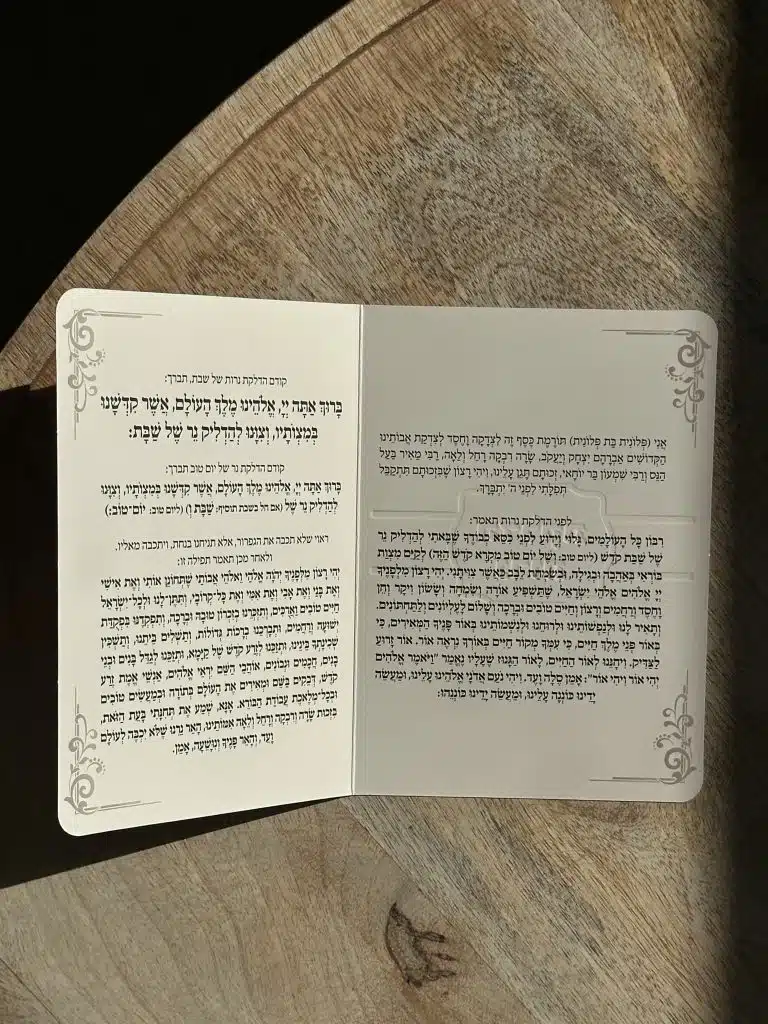 אֲנִי (פְּלוֹנִית בַּת פְּלוֹנִית) תּוֹרֶמֶת כֶּסֶף זֶה לִצְדָקָה וָחֶסֶד לְצִדְקַת אֲבוֹתֵינוּ
הַקְּדוֹשִׁים אַבְרָהָם יִצְחָק וְיַעֲקֹב, שָׂרָה רִבְקָה רָחֵל וְלֵאָה, רַבִּי מֵאִיר בַּעַל
הַנֵּס וְרַבִּי שִׁמְעוֹן בַּר יוֹחַאי, זְכוּתָם תָּגֵן עָלֵינוּ, וִיהִי רָצוֹן שֶׁבִּזְכוּתָם תִּתְקַבֵּל
תְּפִלָּתִי לִפְנֵי ה' יִתְבָּרַךְ.
לפני הדלקת נרות תאמר:
רִבּוֹן כָּל הָעוֹלָמִים, גָּלוּי וְיָדוּעַ לִפְנֵי כִסֵּא כְבוֹדֶךָ שֶׁבָּאתִי לְהַדְלִיק נֵר
שֶׁל שַׁבַּת קֹדֶשׁ (ליום טוב: וְשֶׁל יוֹם טוֹב מִקְרָא קֹדֶשׁ הַזֶּה) לְקַיֵּם מִצְוַת
בּוֹרְאִי בְּאַהֲבָה וּבְגִילָה, וּבְשִׂמְחַת לֵבָב כַּאֲשֶׁר צִוִּיתַנִי. יְהִי רָצוֹן מִלְּפָנֶיךָ
יְיָ אֱלֹהִים אֱלֹהֵי יִשְׂרָאֵל, שֶׁתַּשְׁפִּיעַ אוֹרָה וְשִׂמְחָה וְשָׂשׂוֹן וִיקָר וְחֵן
וָחֶסֶד וְרַחֲמִים וְרָצוֹן וְחַיִּים טוֹבִים וּבְרָכָה וְשָׁלוֹם לָעֶלְיוֹנִים וְלַתַּחְתּוֹנִים.
וְתָאִיר לָנוּ וּלְנַפְשׁוֹתֵינוּ וּלְרוּחֵנוּ וּלְנִשְׁמוֹתֵינוּ בְּאוֹר פָּנֶיךָ הַמְּאִירִים, כִּי
בְּאוֹר פְּנֵי מֶלֶךְ חַיִּים, כִּי עִמְּךָ מְקוֹר חַיִּים בְּאוֹרְךָ נִרְאֶה אוֹר. אוֹר זָרוּעַ
לַצַּדִּיק, וְיִתְּנֵנוּ לְאוֹר הַחַיִּים, לָאוֹר הַגָּנוּז שֶׁעָלָיו נֶאֱמַר "וַיֹּאמֶר אֱלֹהִים
יְהִי אוֹר וַיְהִי אוֹר": אָמֵן סֶלָה וָעֶד, וִיהִי נֹעַם אֲדֹנָי אֱלֹהֵינוּ עָלֵינוּ, וּמַעֲשֵׂה
יָדֵינוּ כּוֹנְנָה עָלֵינוּ, וּמַעֲשֵׂה יָדֵינוּ כּוֹנְנֵהוּ:
קודם הדלקת נרות של שבת, תברך:
בָּרוּךְ אַתָּה יְיָ, אֱלֹהֵינוּ מֶלֶךְ הָעוֹלָם, אֲשֶׁר קִדְּשָׁנוּ
בְּמִצְוֹתָיו, וְצִוָּנוּ לְהַדְלִיק נֵר שֶׁל שַׁבָּת:
קודם הדלקת נר של יום טוב תברך:
בָּרוּךְ אַתָּה יְיָ, אֱלֹהֵינוּ מֶלֶךְ הָעוֹלָם, אֲשֶׁר קִדְּשָׁנוּ בְּמִצְוֹתָיו, וְצִוָּנוּ
לְהַדְלִיק נֵר שֶׁל (אם חל בשבת תוסיף: שַׁבָּת וְ) (ליום טוב: יוֹם־טוֹב:)
ראוי שלא תכבה את הגפרור, אלא תניחנו בנחת, ויתכבה מאליו.
ולאחר מכן תאמר תפילה זו:
יְהִי רָצוֹן מִלְּפָנֶיךָ יְהֹוָה אֱלֹהַי וֵאלֹהֵי אֲבוֹתַי שֶׁתְּחוֹנֵן אוֹתִי וְאֶת אִישִׁי
וְאֶת בָּנַי וְאֶת אָבִי וְאֶת אִמִּי וְאֶת כָּל־קְרוֹבַי, וְתִתֵּן־לָנוּ וּלְכָל־יִשְׂרָאֵל
חַיִּים טוֹבִים וַאֲרֻכִּים, וְתִזְכְּרֵנוּ בְּזִכְרוֹן טוֹבָה וּבְרָכָה, וְתִפְקְדֵנוּ בִּפְקֻדַּת
יְשׁוּעָה וְרַחֲמִים, וּתְבָרְכֵנוּ בְּרָכוֹת גְּדוֹלוֹת, וְתַשְׁלִים בֵּיתֵנוּ, וְתַשְׁכִּין
שְׁכִינָתְךָ בֵּינֵינוּ, וּתְזַכֵּנוּ לְזֶרַע קֹדֶשׁ שֶׁל קַיָּמָא, וּתְזַכֵּנוּ לְגַדֵּל בָּנִים וּבְנֵי
בָנִים, חֲכָמִים וּנְבוֹנִים, אוֹהֲבֵי הַשֵּׁם יִרְאֵי אֱלֹהִים, אַנְשֵׁי אֱמֶת זֶרַע
קֹדֶשׁ, דְּבֵקִים בַּשֵּׁם וּמְאִירִים אֶת הָעוֹלָם בְּתוֹרָה וּבְמַעֲשִׂים טוֹבִים
וּבְכָל־מְלֶאכֶת עֲבוֹדַת הַבּוֹרֵא. אָנָּא, שְׁמַע אֶת תְּחִנָּתִי בָּעֵת הַזֹּאת,
בִּזְכוּת שָׂרָה וְרִבְקָה וְרָחֵל וְלֵאָה אִמּוֹתֵינוּ, הָאֵר נֵרֵנוּ שֶׁלֹּא יִכְבֶּה לְעוֹלָם
וָעֶד, וְהָאֵר פָּנֶיךָ וְנִוָּשֵׁעָה, אָמֵן.